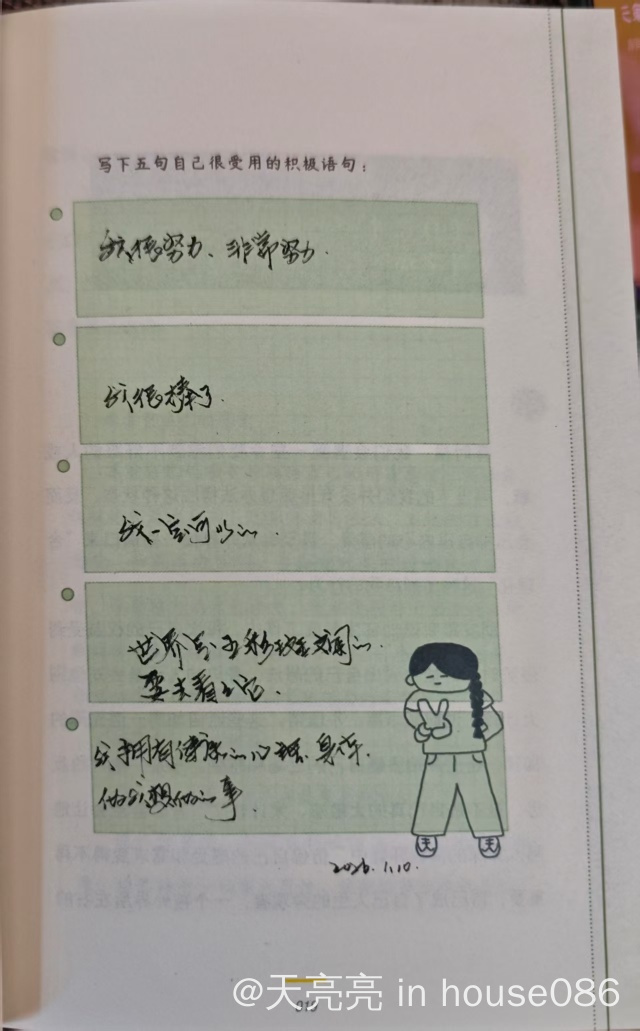 写下五句自己很受用的积极语句：
我很努力、非常努力.
我很棒了.
我一定可以的.
世界多采斑斓的.
要去看看它.
我拥有健康的心理、身体.
做我想做的事
2026.1.10.
@天亮亮 in house086